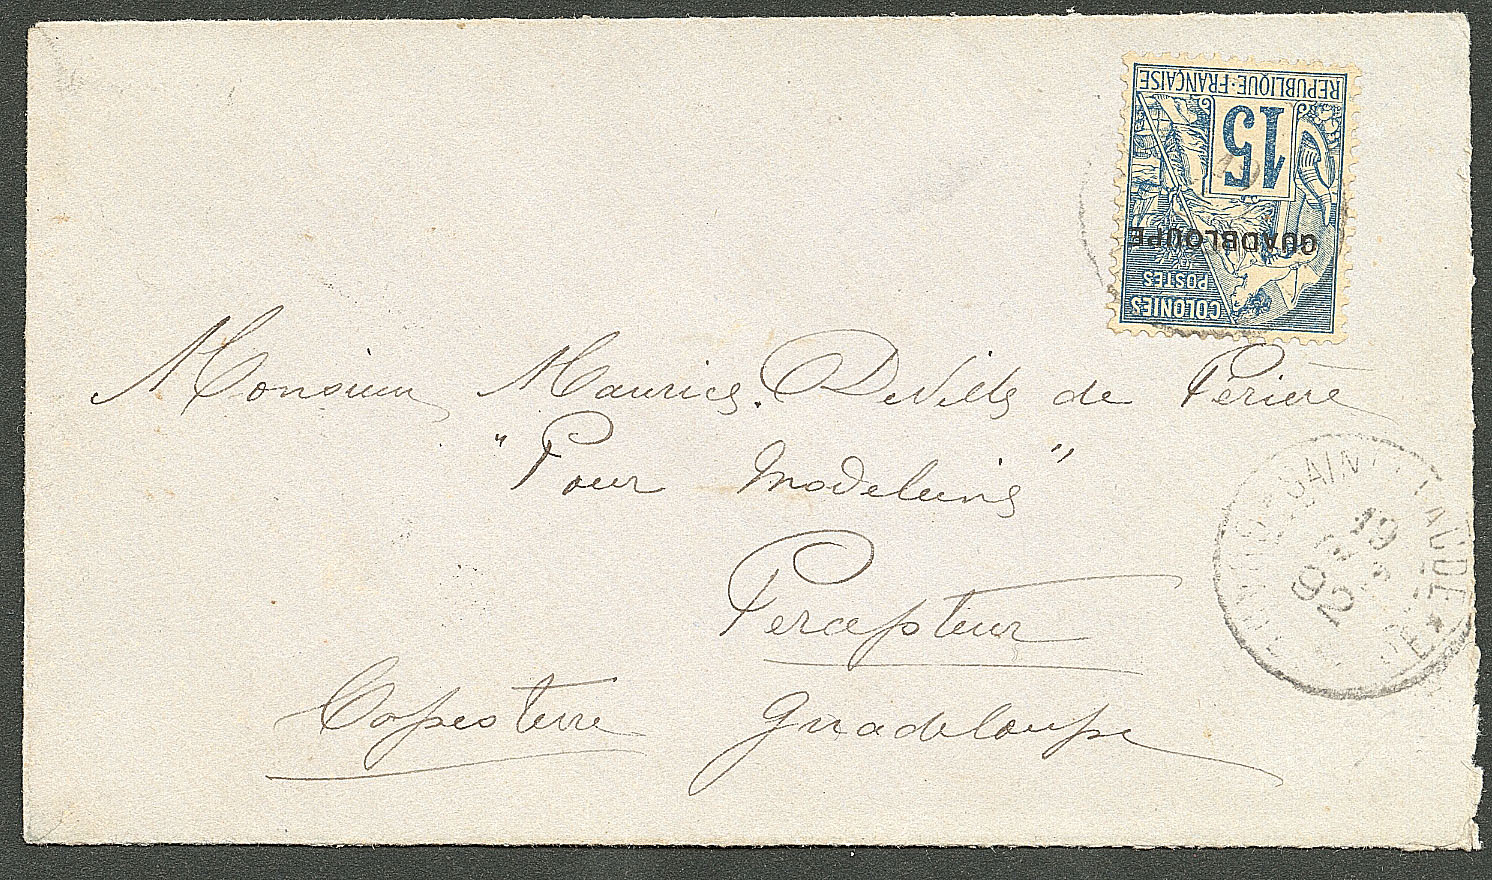 REPUBLIQUE·FRANÇAISE
15
GUADBLOUPE
POSTES
COLONIES
Monsieur Maurice. DeVille de Perière
"Pour Madeleine"
Percepteur
Capesterre Guadeloupe
SAINT CLAUDE
19
92